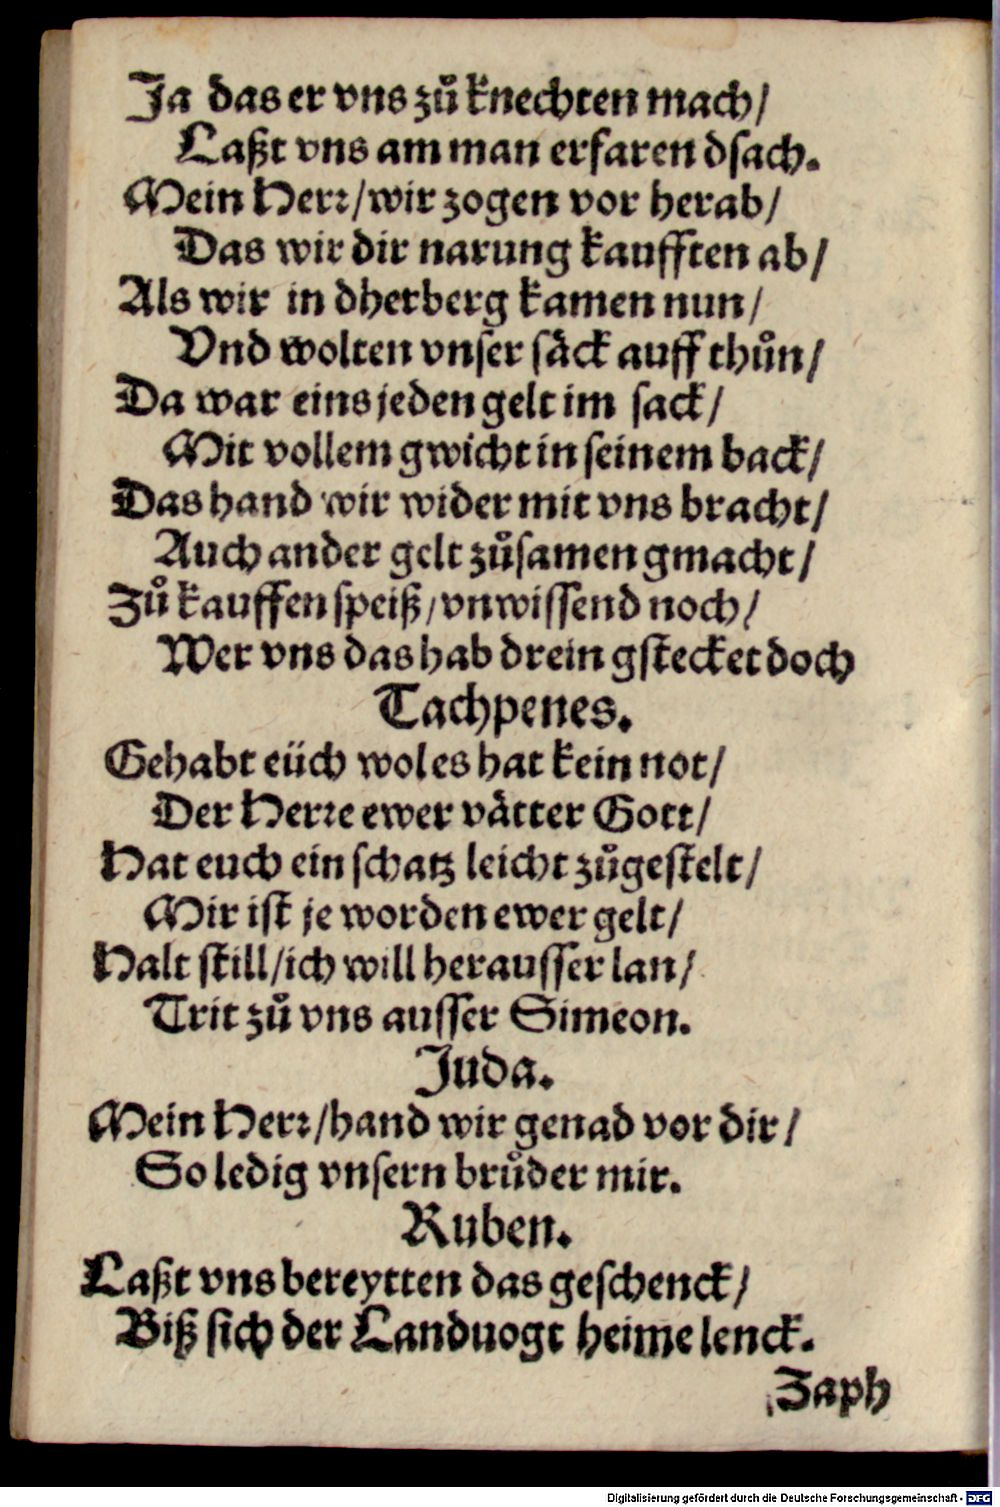 Ja das er vns zů knechten mach/
Laßt vns am man erfaren dsach.
Mein Herꝛ/wir zogen vor herab/
Das wir dir narung kaufften ab/
Als wir in dherberg kamen nun/
Vnd wolten vnser säck auff thůn/
Da war eins jeden gelt im sack/
Mit vollem gwicht in seinem back/
Das hand wir wider mit vns bracht/
Auch ander gelt zůsamen gmacht/
Zů kauffen speiß/vnwissend noch/
Wer vns das hab drein gstecket doch
Tachpenes.
Gehabt eüch wol es hat kein not/
Der Herꝛe ewer vätter Gott/
Hat euch ein schatz leicht zůgestelt/
Mir ist je worden ewer gelt/
Halt still/ich will herausser lan/
Trit zů vns ausser Simeon.
Juda.
Mein Herꝛ/hand wir genad vor dir/
So ledig vnsern brůder mir.
Ruben.
Laßt vns bereytten das geschenck/
Biß sich der Landuogt heime lenck.
Zaph
Digitalisierung gefördert durch die Deutsche Forschungsgemeinschaft - DFG